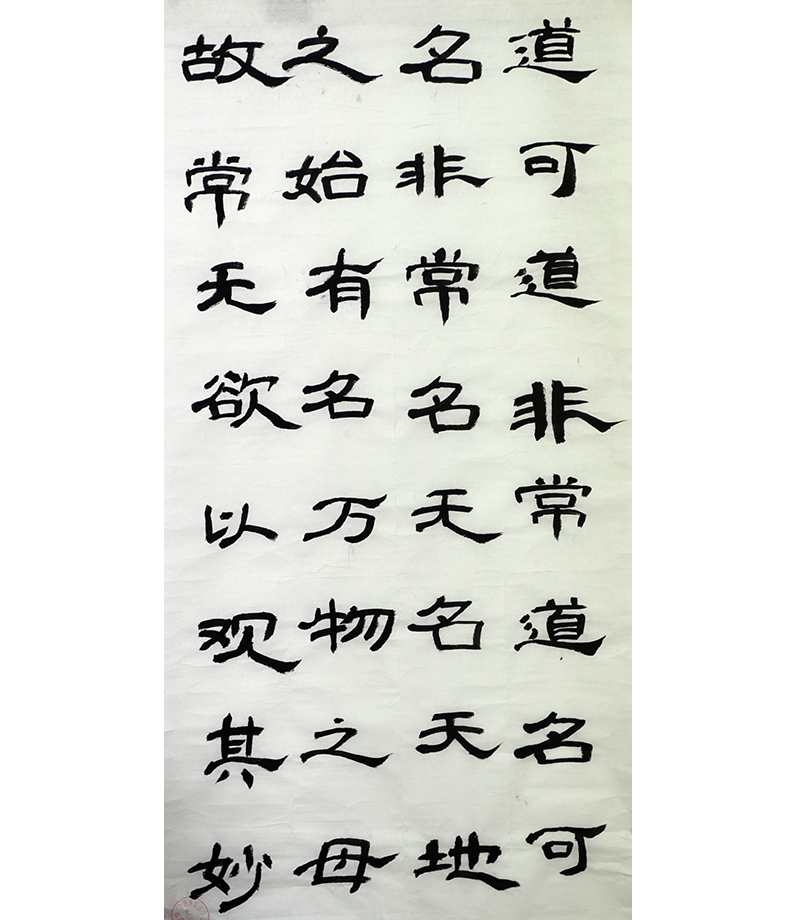 道可道非常道名可
名非常名无名天地
之始有名万物之母
故常无欲以观其妙